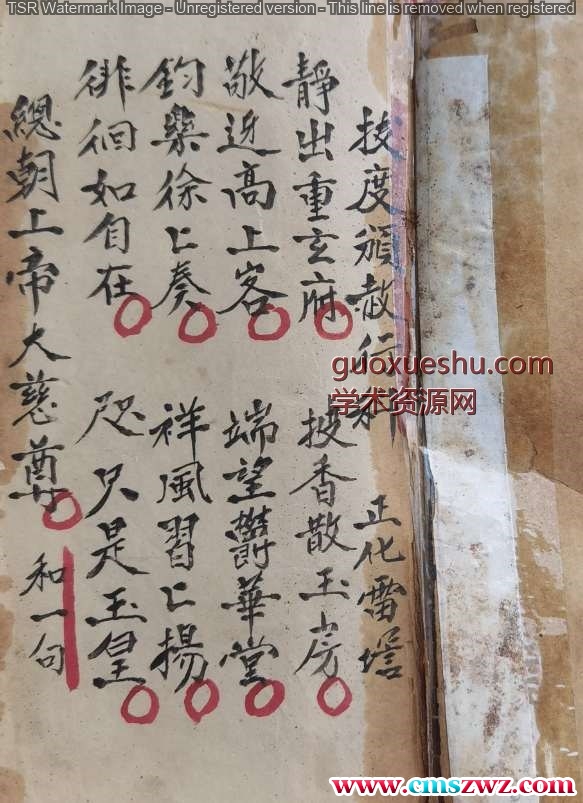 TSR Watermark Image - Unregistered version - This line is removed when registered
拔度頒赦行科 正化雷壇
靜出重玄府 披香散玉房
敬迓高上客 端望欝華堂
鈞樂徐〻奏 祥風習〻揚
徘徊如自在 咫尺是玉皇
總朝上帝大慈尊 和一句
guoxueshu.com
学术资源网
www.cmszwz.com